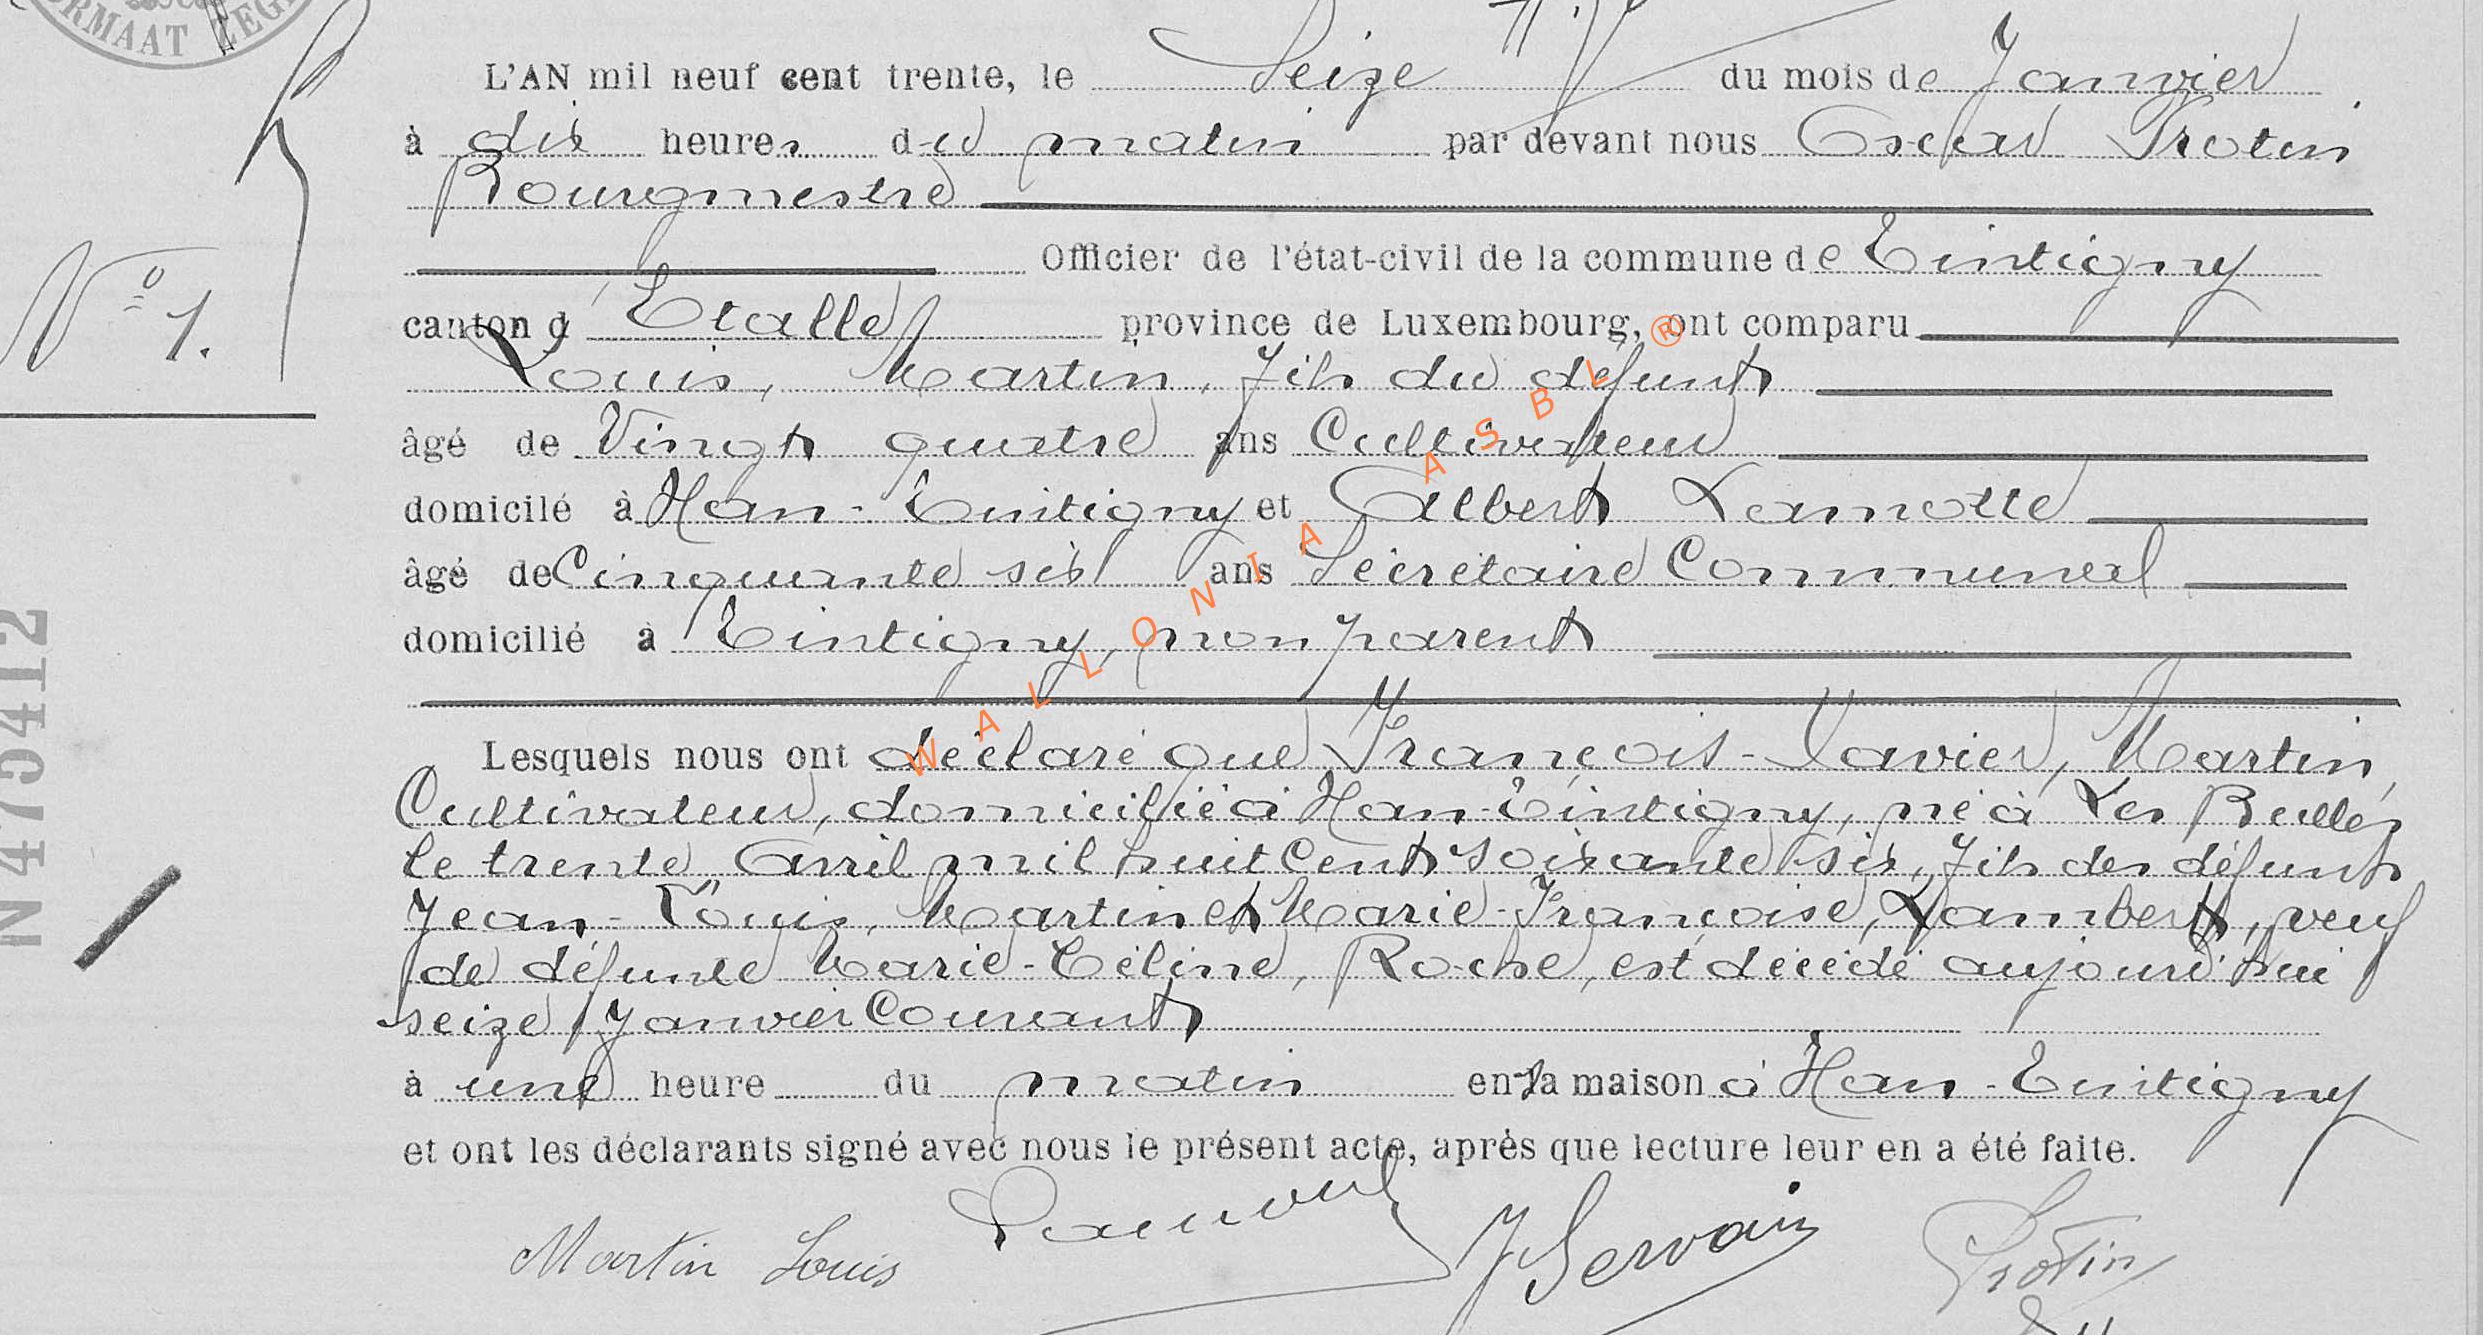 RMAAT ZEG
L'AN mil neuf cent trente, le Seize du mois de Janvier
à dix heures du matin par devant nous Oscar Protin
Bourgmestre
Officier de l'état-civil de la commune de Tintigny
N° 1.
canton d'Etalle province de Luxembourg, ont comparu
Louis, Martin, fils du défunt
âgé de Vingt quatre ans Cultivateur
domicilé à Han-Tintigny et Albert Lamotte
âgé de Cinquante six ans Secrétaire Communal
domicilié à Tintigny, non parent
Lesquels nous ont déclaré que François-Xavier, Martin,
Cultivateur, domicilié à Han-Tintigny, né à Les Bulles
le trente Avril mil huit Cent soixante six, fils des défunts
Jean-Louis, Martin et Marie-Françoise, Lambert, veuf
de défunte Marie-Céline, Roche, est décédé aujourd'hui
seize Janvier Courant
à une heure du matin en sa maison à Han-Tintigny
et ont les déclarants signé avec nous le présent acte, après que lecture leur en a été faite.
Martin Louis J Servais Protin
N 475412
WALLONIA ASBL ®